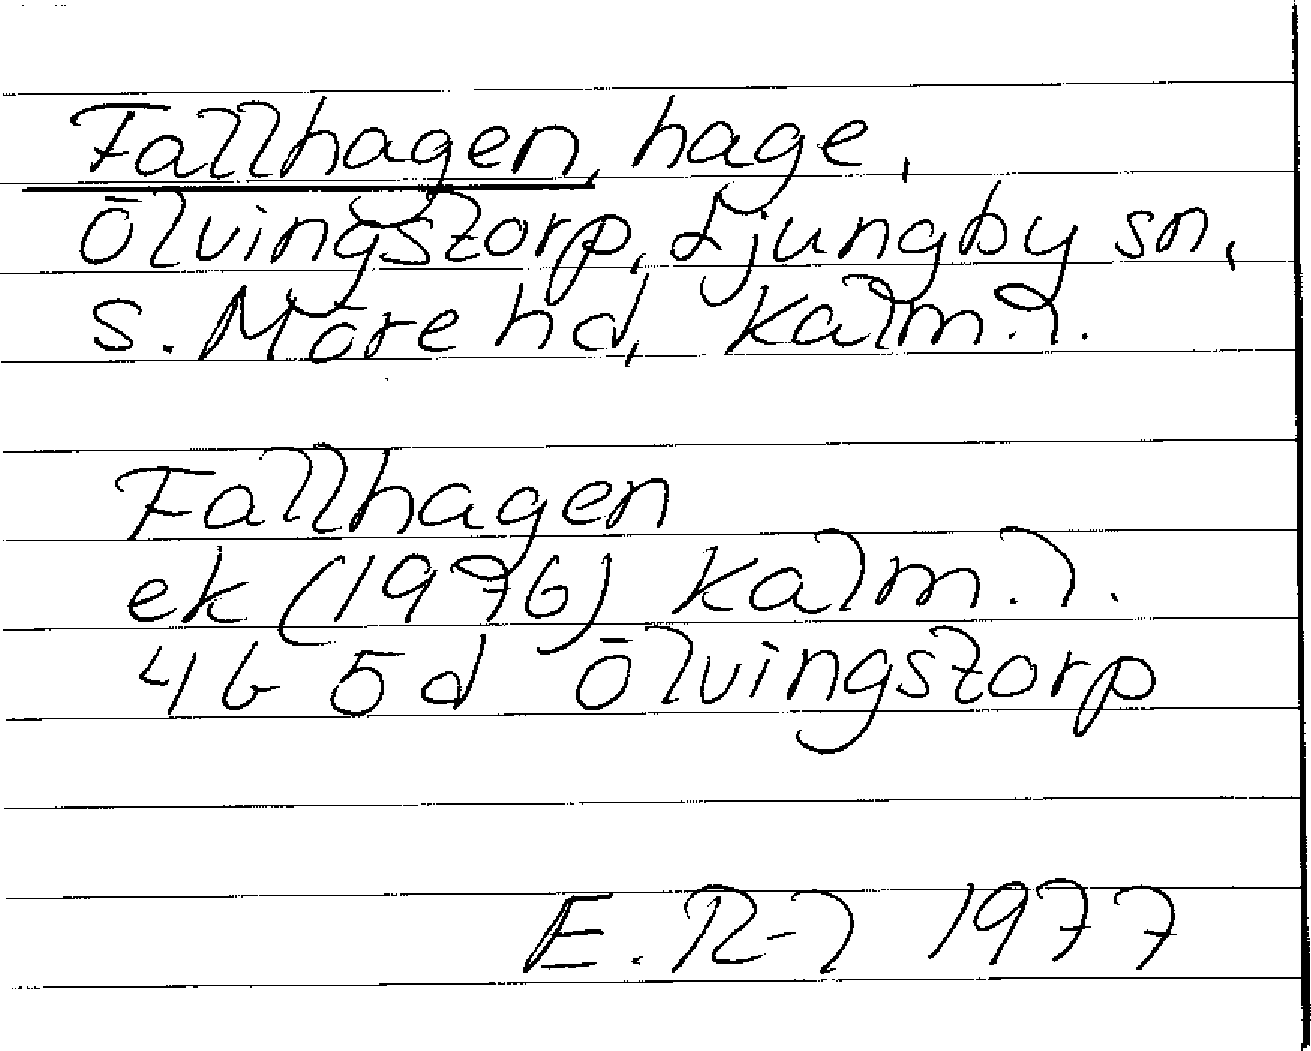 Fallhagen, hage,
Ölvingstorp, Ljungby sn,
S. Möre hd, Kalm. l.
Fallhagen
ek (1976) Kalm. l.
4b 5d Ölvingstorp
E. R-l 1977